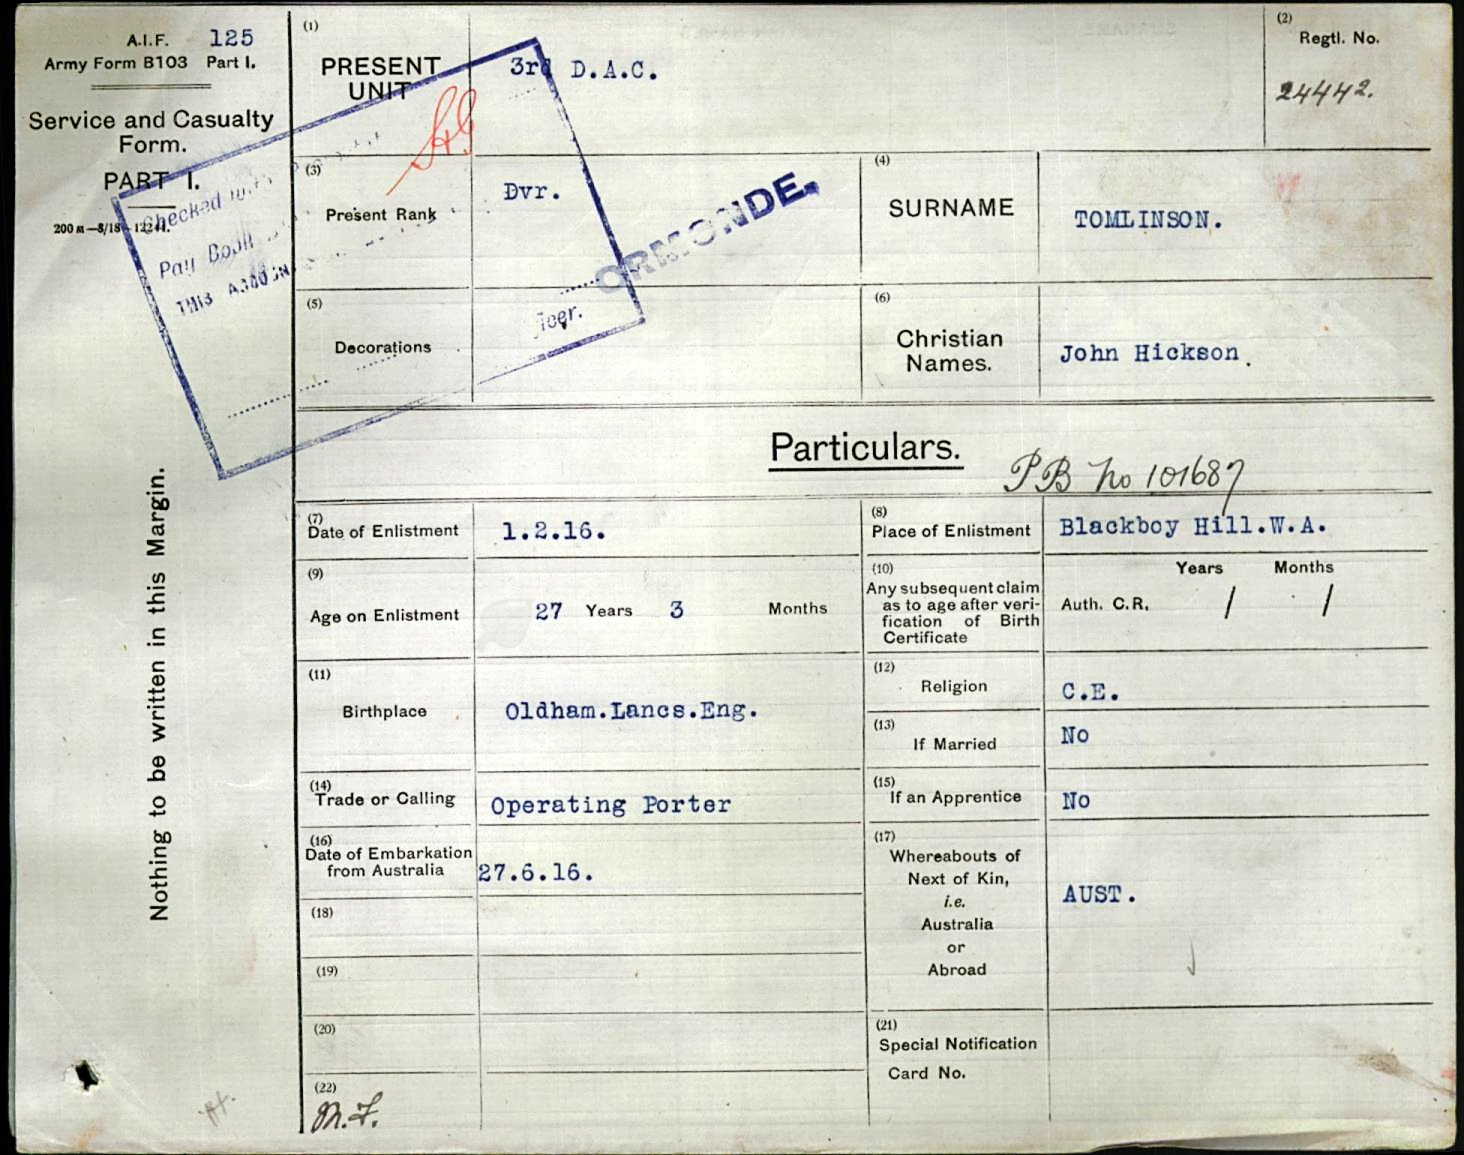 A.I.F. 125
Army Form B103 Part I.
Service and Casualty
Form.
PART I.
200 M—8/18—12244.
Nothing to be written in this Margin.
(1)
PRESENT
UNIT
3rd D.A.C.
(2)
Regtl. No.
24442.
(3)
Present Rank
Dvr.
(4)
SURNAME
TOMLINSON.
Checked with
Pay Book
THIS
ORMONDE.
(5)
Decorations
(6)
Christian
Names.
John Hickson.
Particulars.
PB No 101687
(7)
Date of Enlistment
1.2.16.
(8)
Place of Enlistment
Blackboy Hill.W.A.
(9)
Age on Enlistment
27 Years 3 Months
(10)
Any subsequent claim
as to age after veri-
fication of Birth
Certificate
Years Months
Auth. C.R. / /
(11)
Birthplace
Oldham.Lancs.Eng.
(12)
Religion
C.E.
(13)
If Married
No
(14)
Trade or Calling
Operating Porter
(15)
If an Apprentice
No
(16)
Date of Embarkation
from Australia
27.6.16.
(17)
Whereabouts of
Next of Kin,
i.e.
Australia
or
Abroad
AUST.
(18)
(19)
(20)
(21)
Special Notification
Card No.
(22)
M.F.